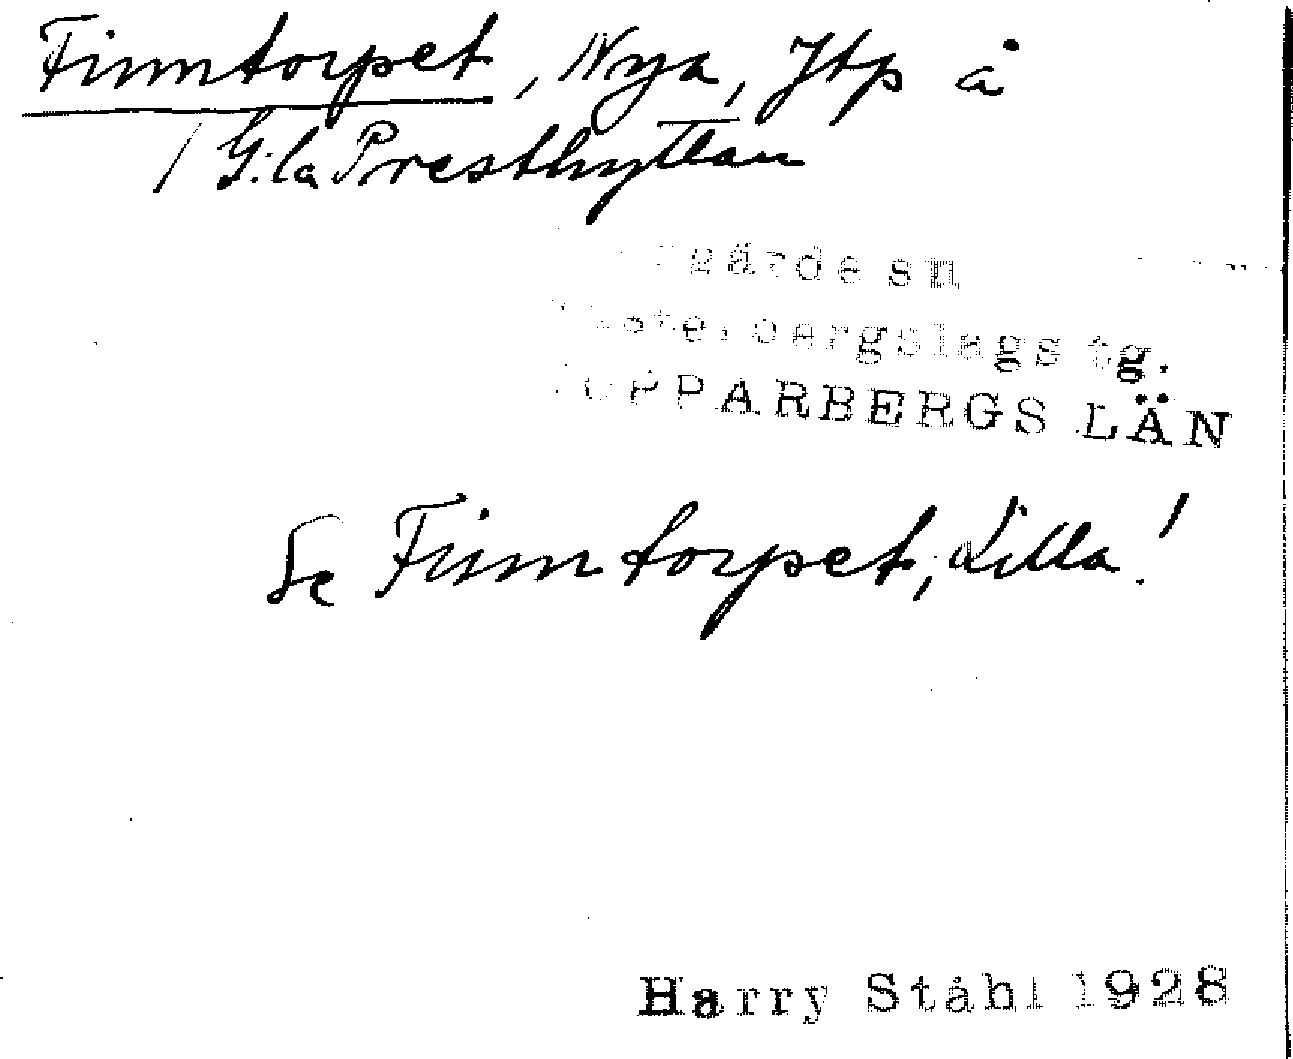 Finntorpet, Nya, Jtp å
/ G:la Presthyttan
sn
bergslags tg.
KOPPARBERGS LÄN
Se Finntorpet, Lilla!
Harry Ståhl 1928